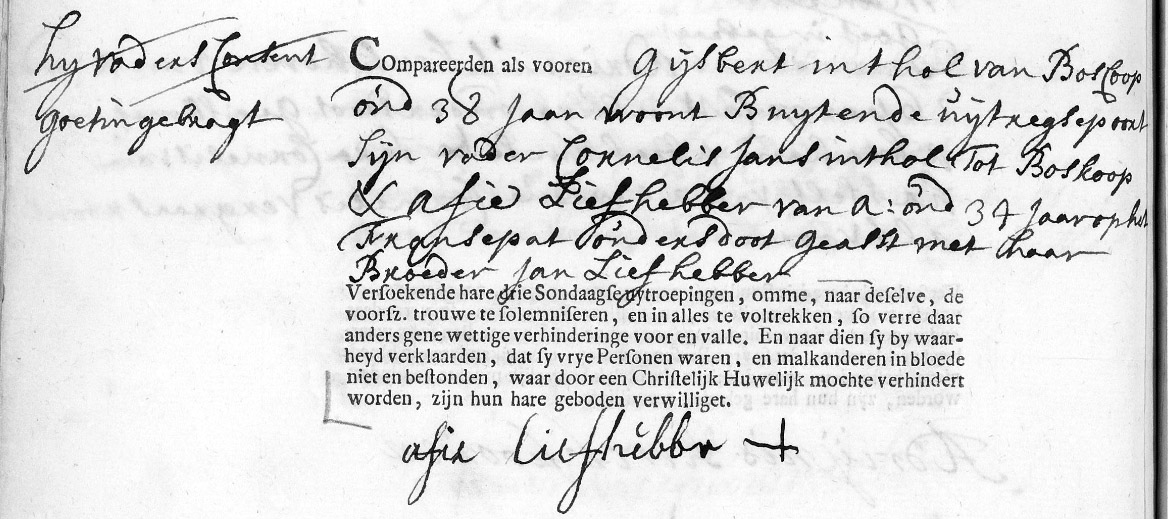 hy vaders Consent
goet ingebragt
Compareerden als vooren Gijsbert inthol van Boscoop
oúd 38 Jaar woont Buytende uijtregsepoort
Sijn vader Cornelis Jans inthol Tot Boskoop
& Asie Liefhebber van A: oúd 34 Jaar op het
Fransepat oúders doot geasst met haar
Broeder Jan Liefhebber
Versoekende hare drie Sondaagse uytroepingen, omme, naar deselve, de
voorsz. trouwe te solemniseren, en in alles te voltrekken, so verre daar
anders gene wettige verhinderinge voor en valle. En naar dien sy by waar-
heyd verklaarden, dat sy vrye Personen waren, en malkanderen in bloede
niet en bestonden, waar door een Christelijk Huwelijk mochte verhindert
worden, zijn hun hare geboden verwilliget.
asie liefhebbr +